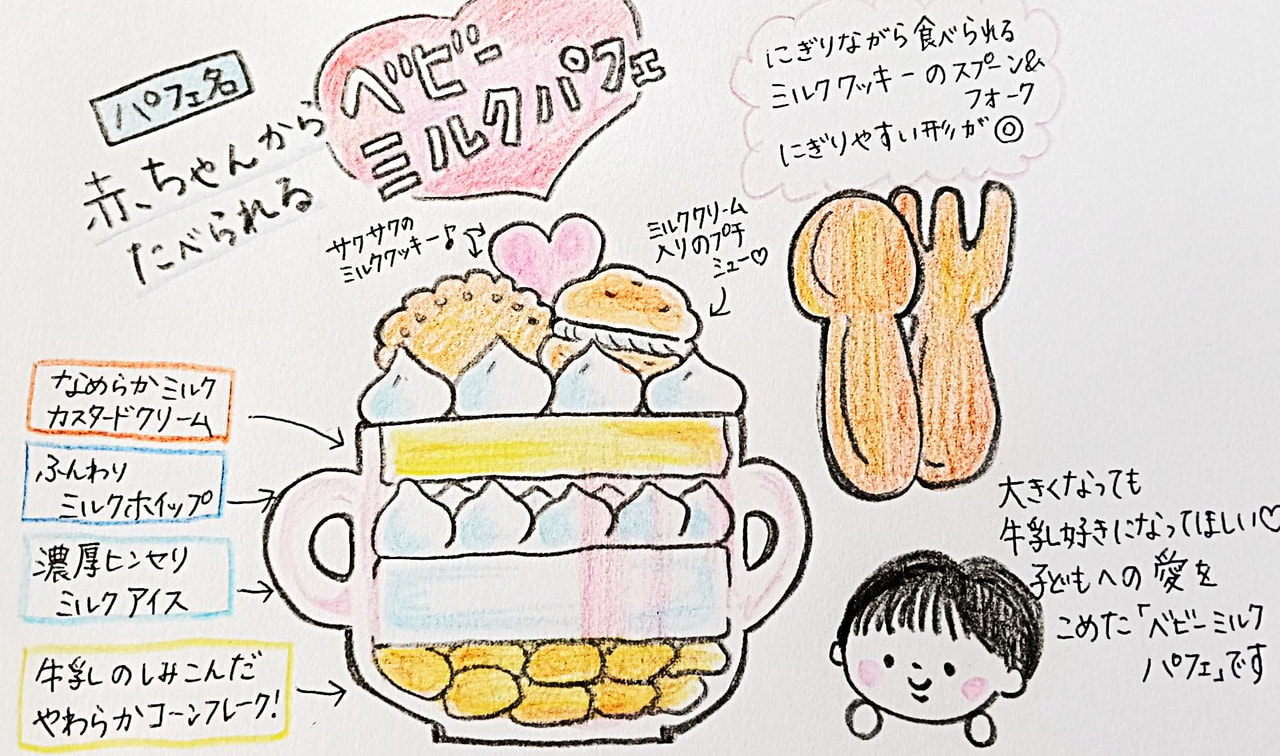 パフェ名
赤ちゃんから
たべられる
ベビー
ミルクパフェ
にぎりながら食べられる
ミルククッキーのスプーン&
フォーク
にぎりやすい形が◎
サクサクの
ミルククッキー♪
ミルククリーム
入りのプチ
シュー♡
なめらかミルク
カスタードクリーム
ふんわり
ミルクホイップ
濃厚ヒンヤリ
ミルクアイス
牛乳のしみこんだ
やわらかコーンフレーク!
大きくなっても
牛乳好きになってほしい♡
子どもへの愛を
こめた「ベビーミルク
パフェ」です